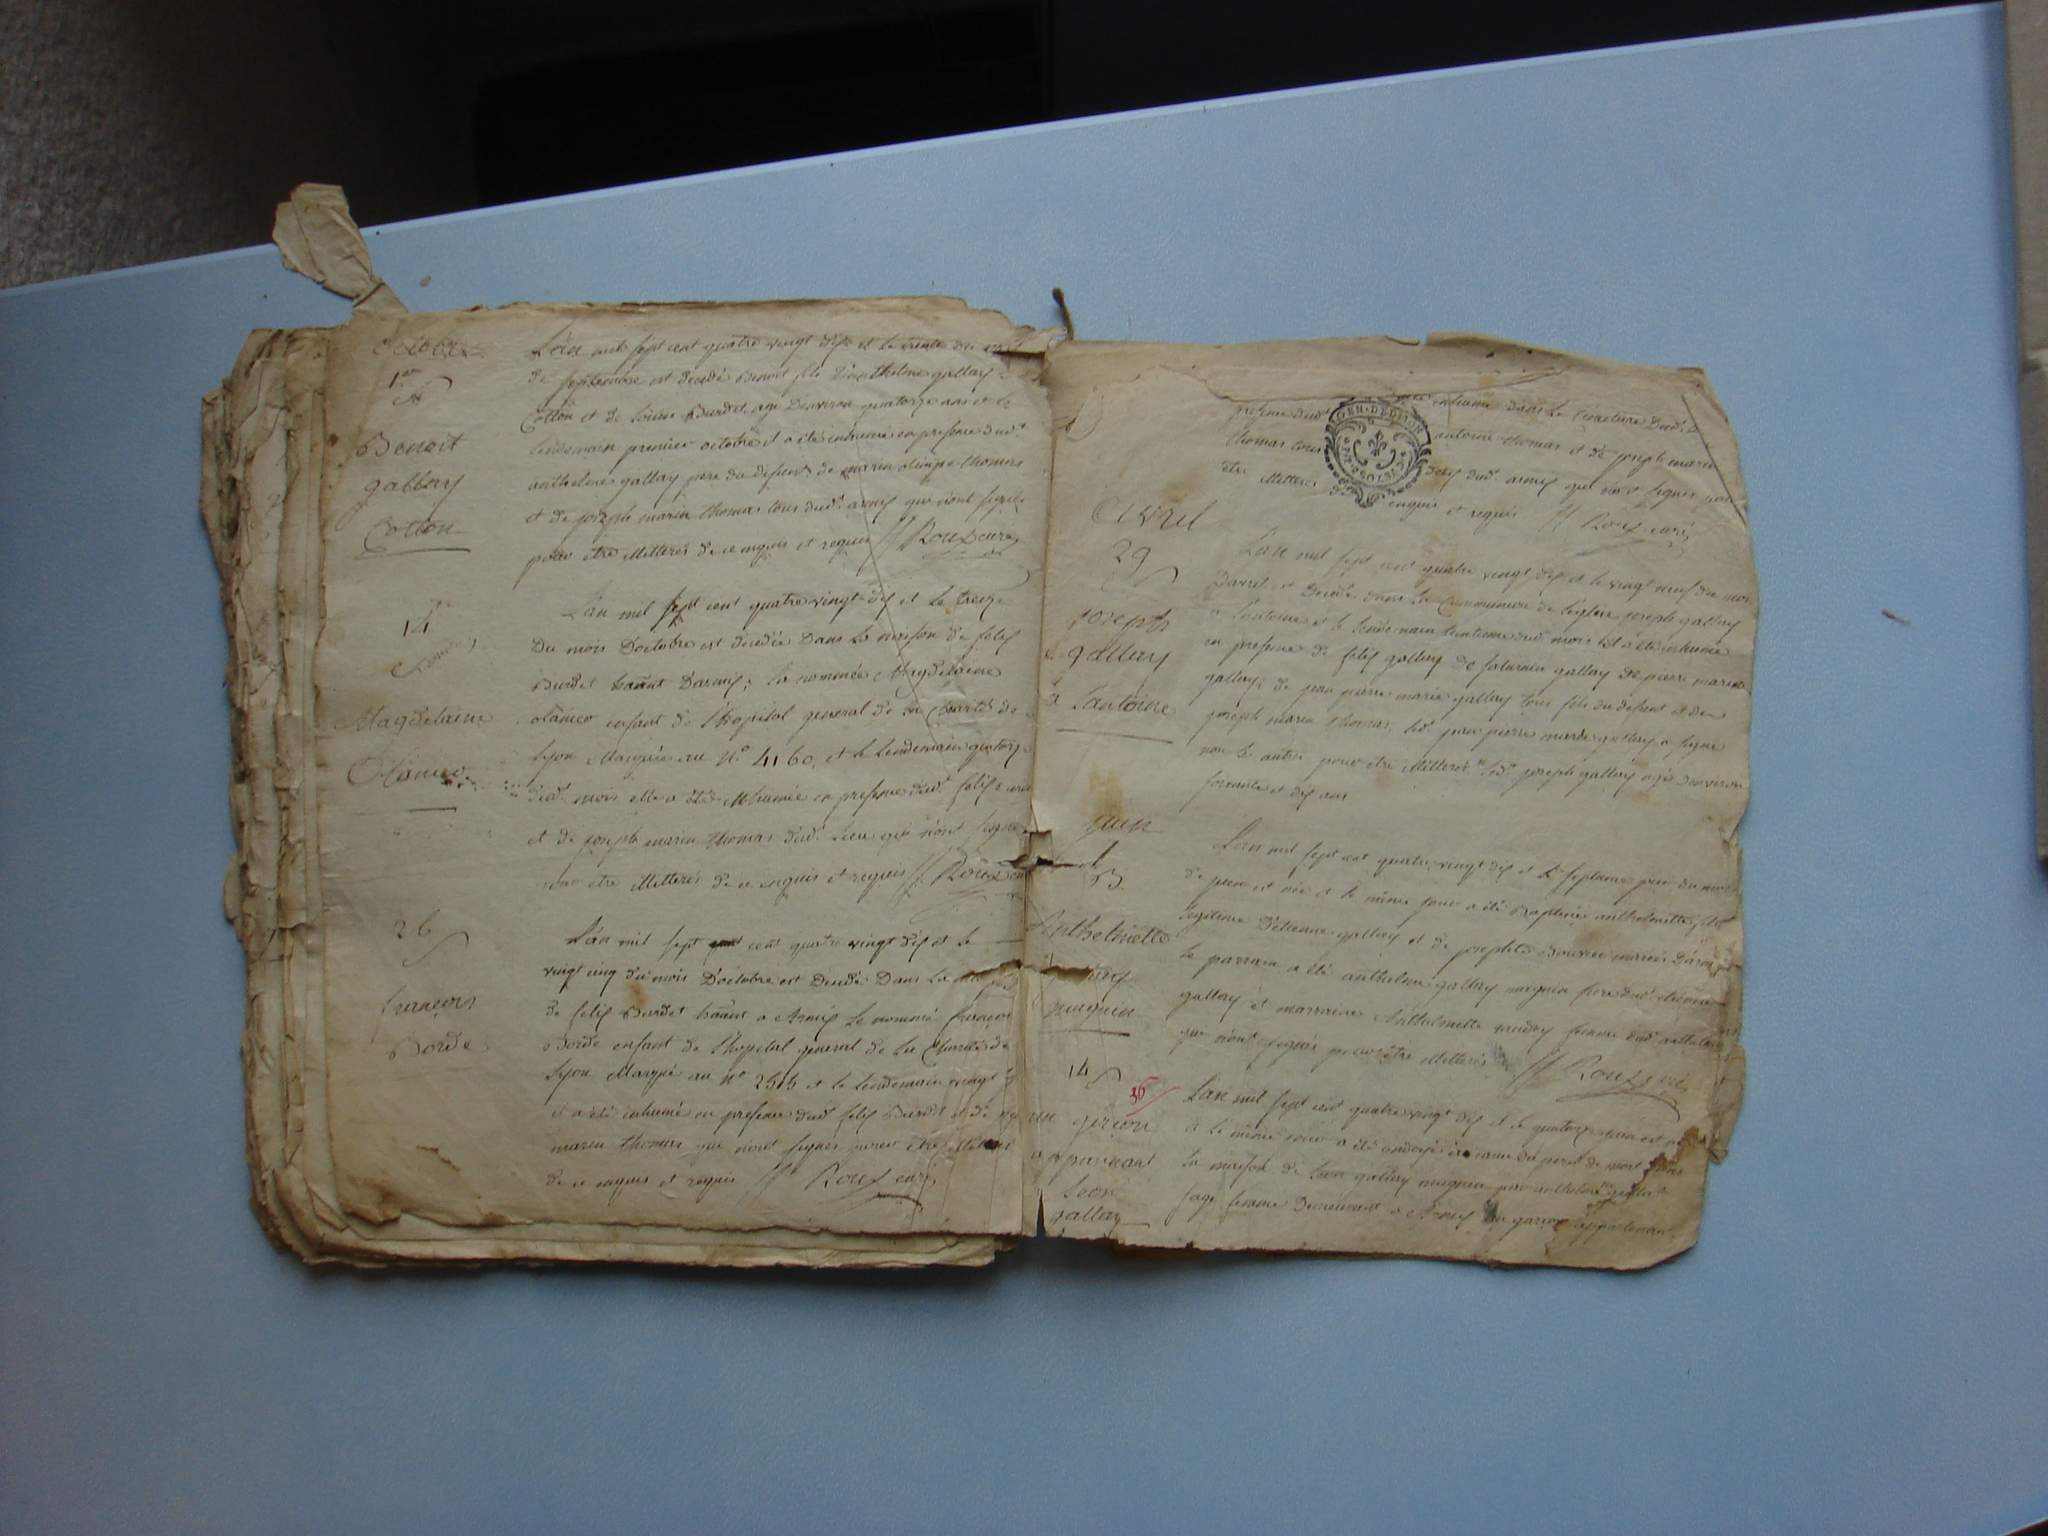 octobre
1er
Benoit
gallay
Cotton
L'an mil sept cent quatre vingt dix et le trente du mois
de septembre est decedé Benoit fils d'anthelme gallay
Cotton et de louise Burdet agé d'environ quatorze ans et le
lendemain premier octobre il a été inhumé en presence dudt
anthelme gallay pere du defunt de marin thomas
et de joseph marin thomas tous dudt armix qui n'ont signé
pour être illitterés de ce enquis et requis Roux curé
14
Magdelaine
L'an mil sept cent quatre vingt dix et le treize
du mois d'octobre est decedée dans la maison de felix
Burdet habitant d'armix; la nommée Magdelaine
enfant de l'hopital general de la charité de
lyon Marquée au No 4160, et le lendemain quatorze
dudt mois elle a été inhumée en presence dudt felix
et de joseph marin thomas dudt lieu qui n'ont signé
pour etre illitterés de ce enquis et requis Roux curé
26
françois
Borde
L'an mil sept cent quatre vingt dix et le
vingt cinq du mois d'octobre est decedé dans la maison
de felix Burdet habitant a Armix le nommé françois
Borde enfant de l'hopital general de la charité de
lyon Marqué au no 2515 et le lendemain vingt
il a été inhumé en presence dudt felix Burdet et de
marin thomas qui n'ont signés pour être illitterés
de ce enquis et requis Roux curé
GEN. DE DIJON
inhumé dans le cimetiere dudt
presence dudt antoine thomas et de joseph marin
thomas tous deux dudt armix qui n'ont signés pour
être illitterés enquis et requis Roux curé
Avril
29
joseph
gallay
à
lantoine
L'an mil sept cent quatre vingt dix et le vingt neuf du mois
d'avril est decedé dans la communion de l'eglise joseph gallay
a lantoine et le lendemain trentieme dudt mois il a été inhumé
en presence de felix gallay de saturnin gallay de pierre marie
gallay, de jean pierre marie gallay tous fils du defunt et de
joseph marin thomas, ledt jean pierre marie gallay a signé
non les autres pour etre illitterés ledt joseph gallay agé d'environ
soixante et dix ans
juin
Anthelmette
gallay
muguin
L'an mil sept cent quatre vingt dix et le septieme jour du mois
de juin est née et le même jour a été Baptisée anthelmette fille
legitime d'etienne gallay et de josephte Bouvier mariés d'armix
le parrain a été anthelme gallay muguin frere dudt etienne
gallay et marraine Anthelmette femme dudt anthelme
qui n'ont signés pour être illitterés Roux curé
14
36
un garçon
appartenant
Leon
gallay
L'an mil sept cent quatre vingt dix et le quatorze juin est né
& le même jour a été ondoyé à cause du peril de mort dans
la maison de Leon gallay muguin par anthelmette
sage femme demeurant a Armix un garçon appartenant